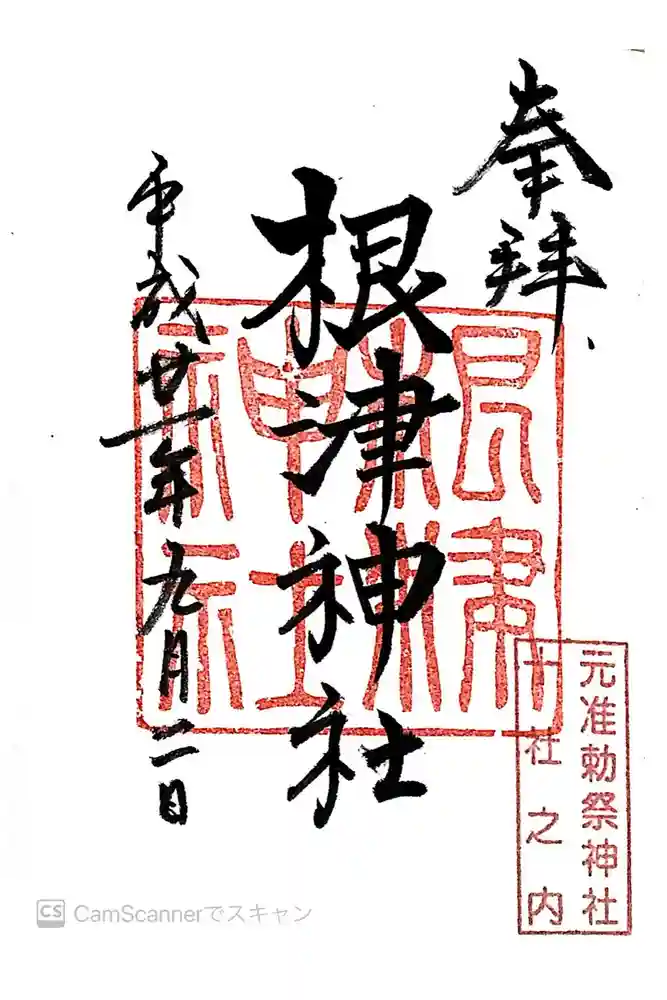 奉拝
根津神社
平成廿一年九月二日
根津神社
元准勅祭神社
十社之内
CS CamScannerでスキャン